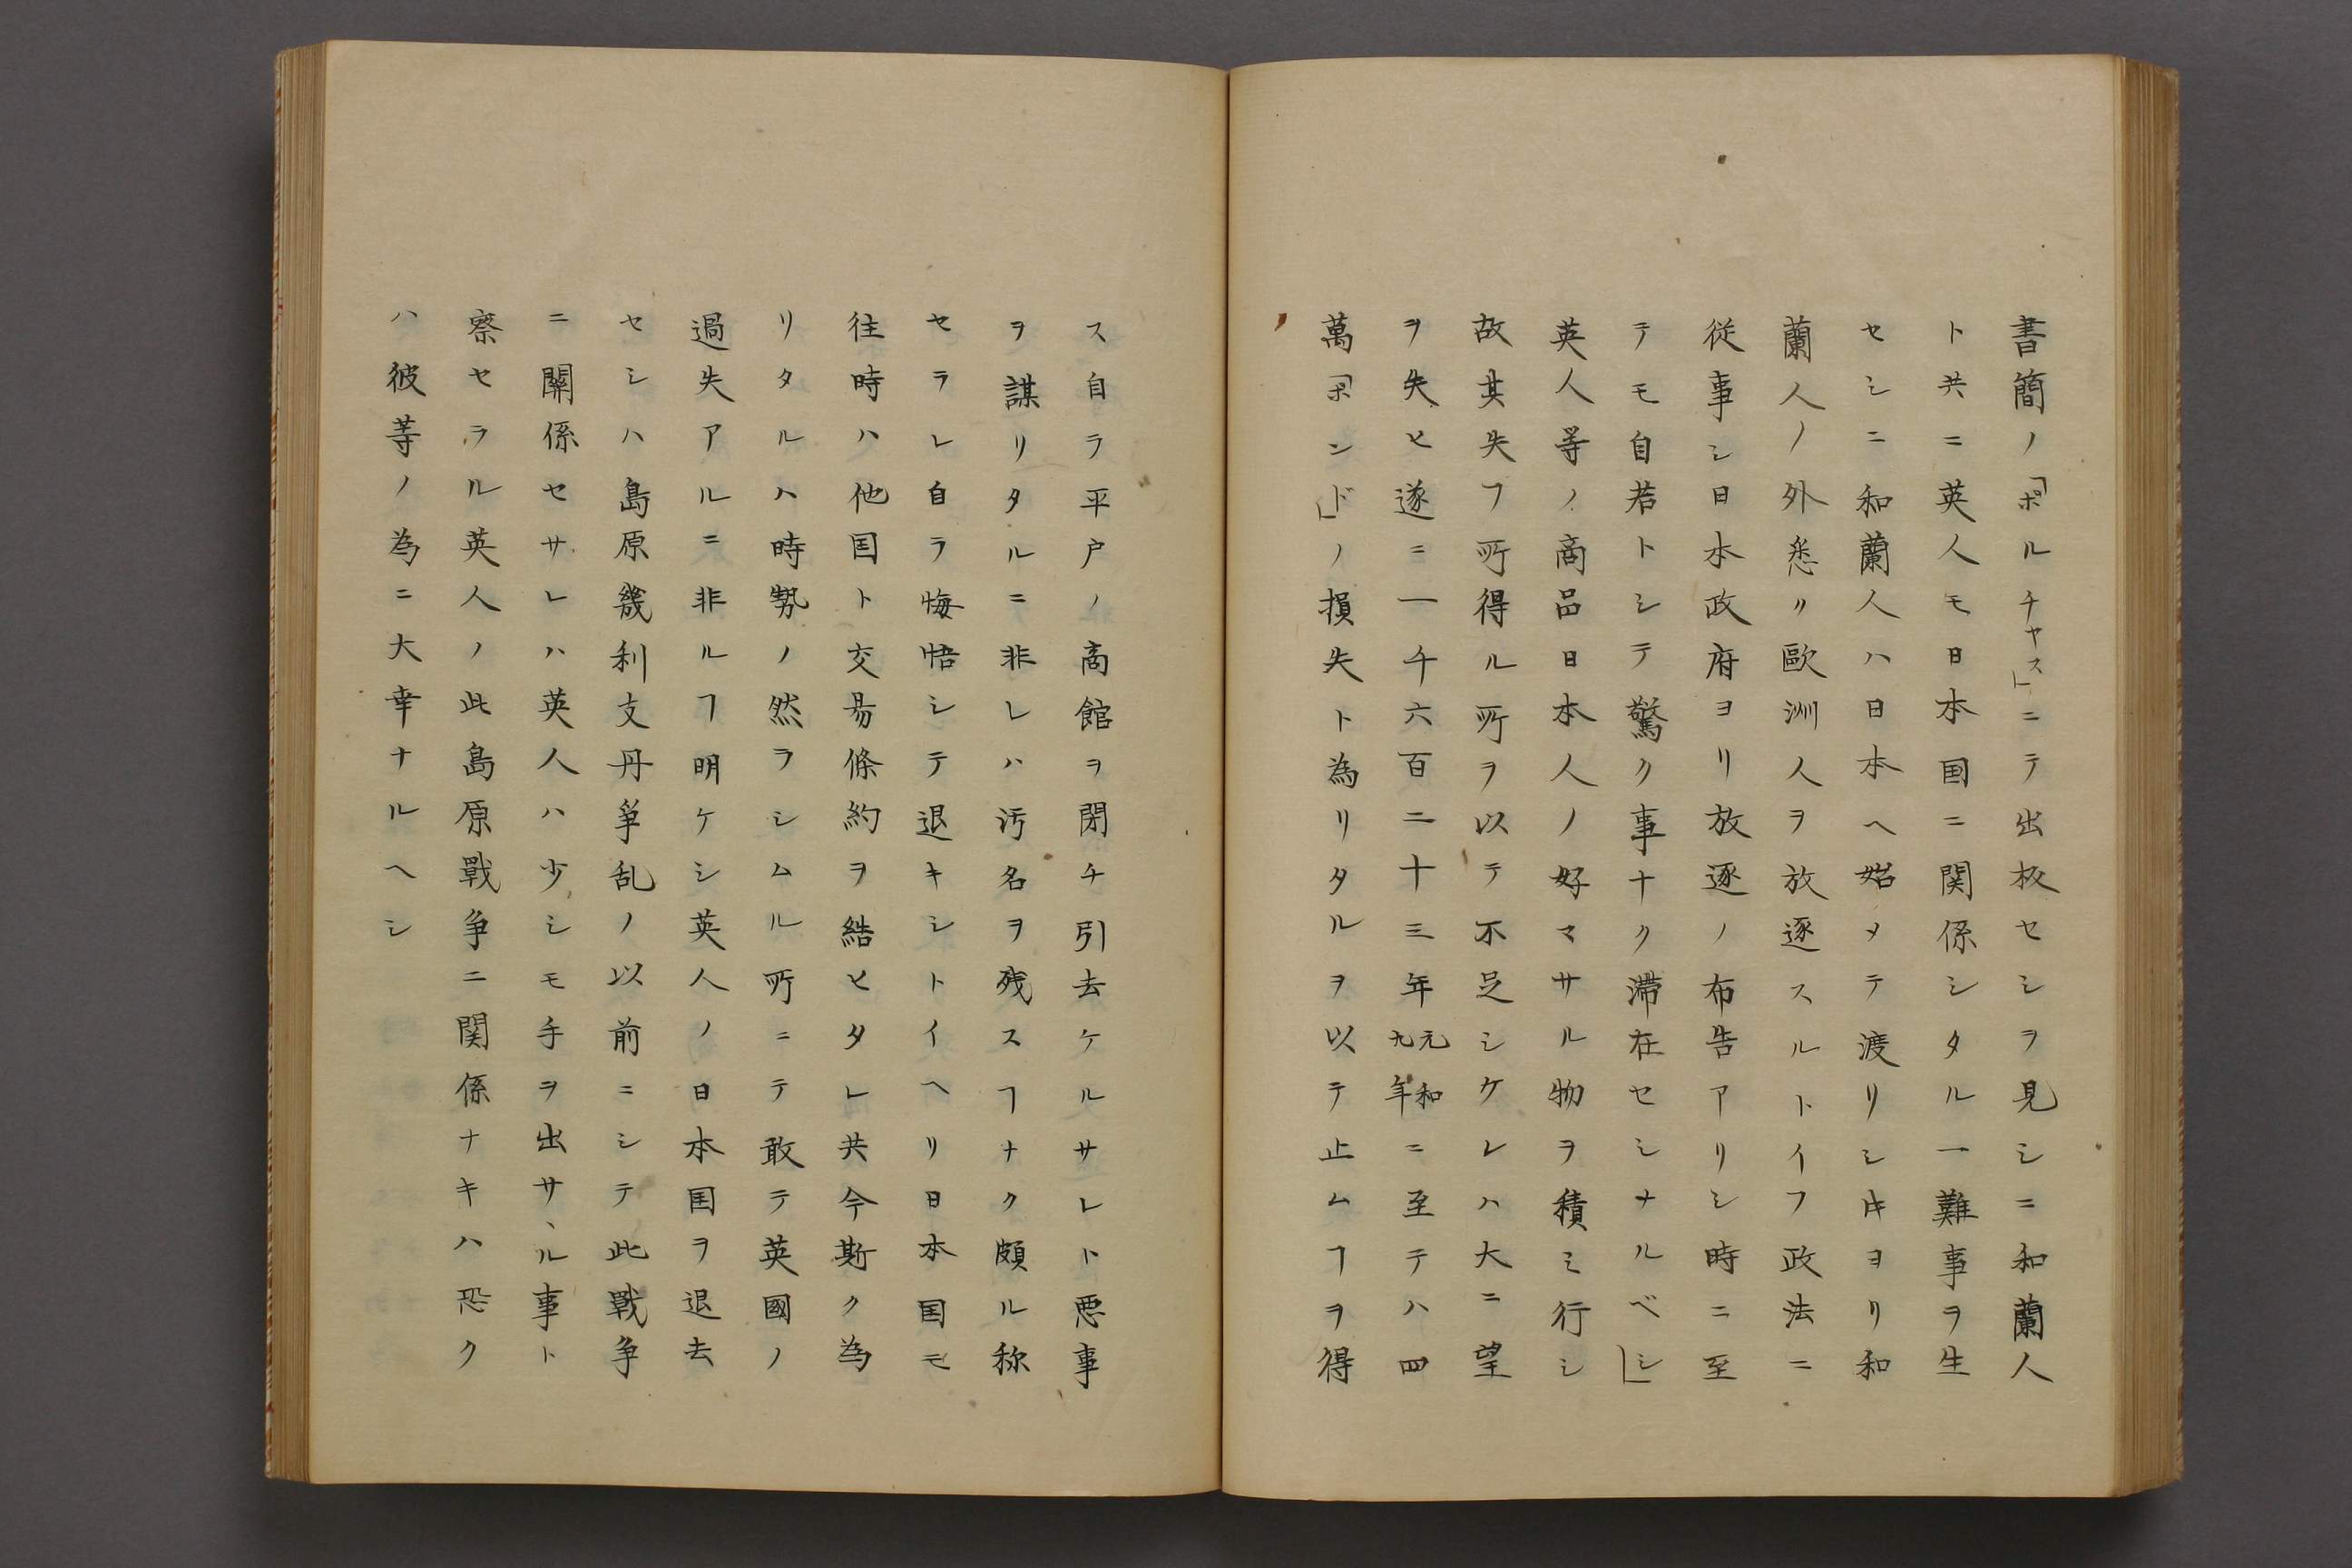 書簡ノ「ポルチヤス」ニテ出板セシヲ見シニ和蘭人
ト共ニ英人モ日本国ニ関係シタル一難事ヲ生
セシニ和蘭人ハ日本ヘ始メテ渡リシ𪜈ヨリ和
蘭人ノ外悉リ歐洲人ヲ放逐スルトイフ政法ニ
従事シ日本政府ヨリ放逐ノ布告アリシ時ニ至
テモ自若トシテ驚ク事ナク滞在セシナルベシ」
英人等ノ商品日本人ノ好マサル物ヲ積ミ行シ
故其失フ所得ル所ヲ以テ不足シケレハ大ニ望
ヲ失ヒ遂ニ一千六百二十三年元和九年ニ至テハ四
萬「ポンド」ノ損失ト為リタルヲ以テ止ムヿヲ得
ス自ラ平戸ノ商館ヲ閉チ引去ケルサレト悪事
ヲ謀リタルニ非レハ汚名ヲ残スヿナク頗ル称
セラレ自ラ悔悟シテ退キシトイヘリ日本国モ
往時ハ他国ト交易條約ヲ結ヒタレ共今斯ク為
リタルハ時勢ノ然ラシムル所ニテ敢テ英國ノ
過失アルニ非ルヿ明ケシ英人ノ日本国ヲ退去
セシハ島原幾利支丹爭乱ノ以前ニシテ此戰争
ニ關係セサレハ英人ハ少シモ手ヲ出サヽル事ト
察セラル英人ノ此島原戰争ニ関係ナキハ恐ク
ハ彼等ノ為ニ大幸ナルヘシ